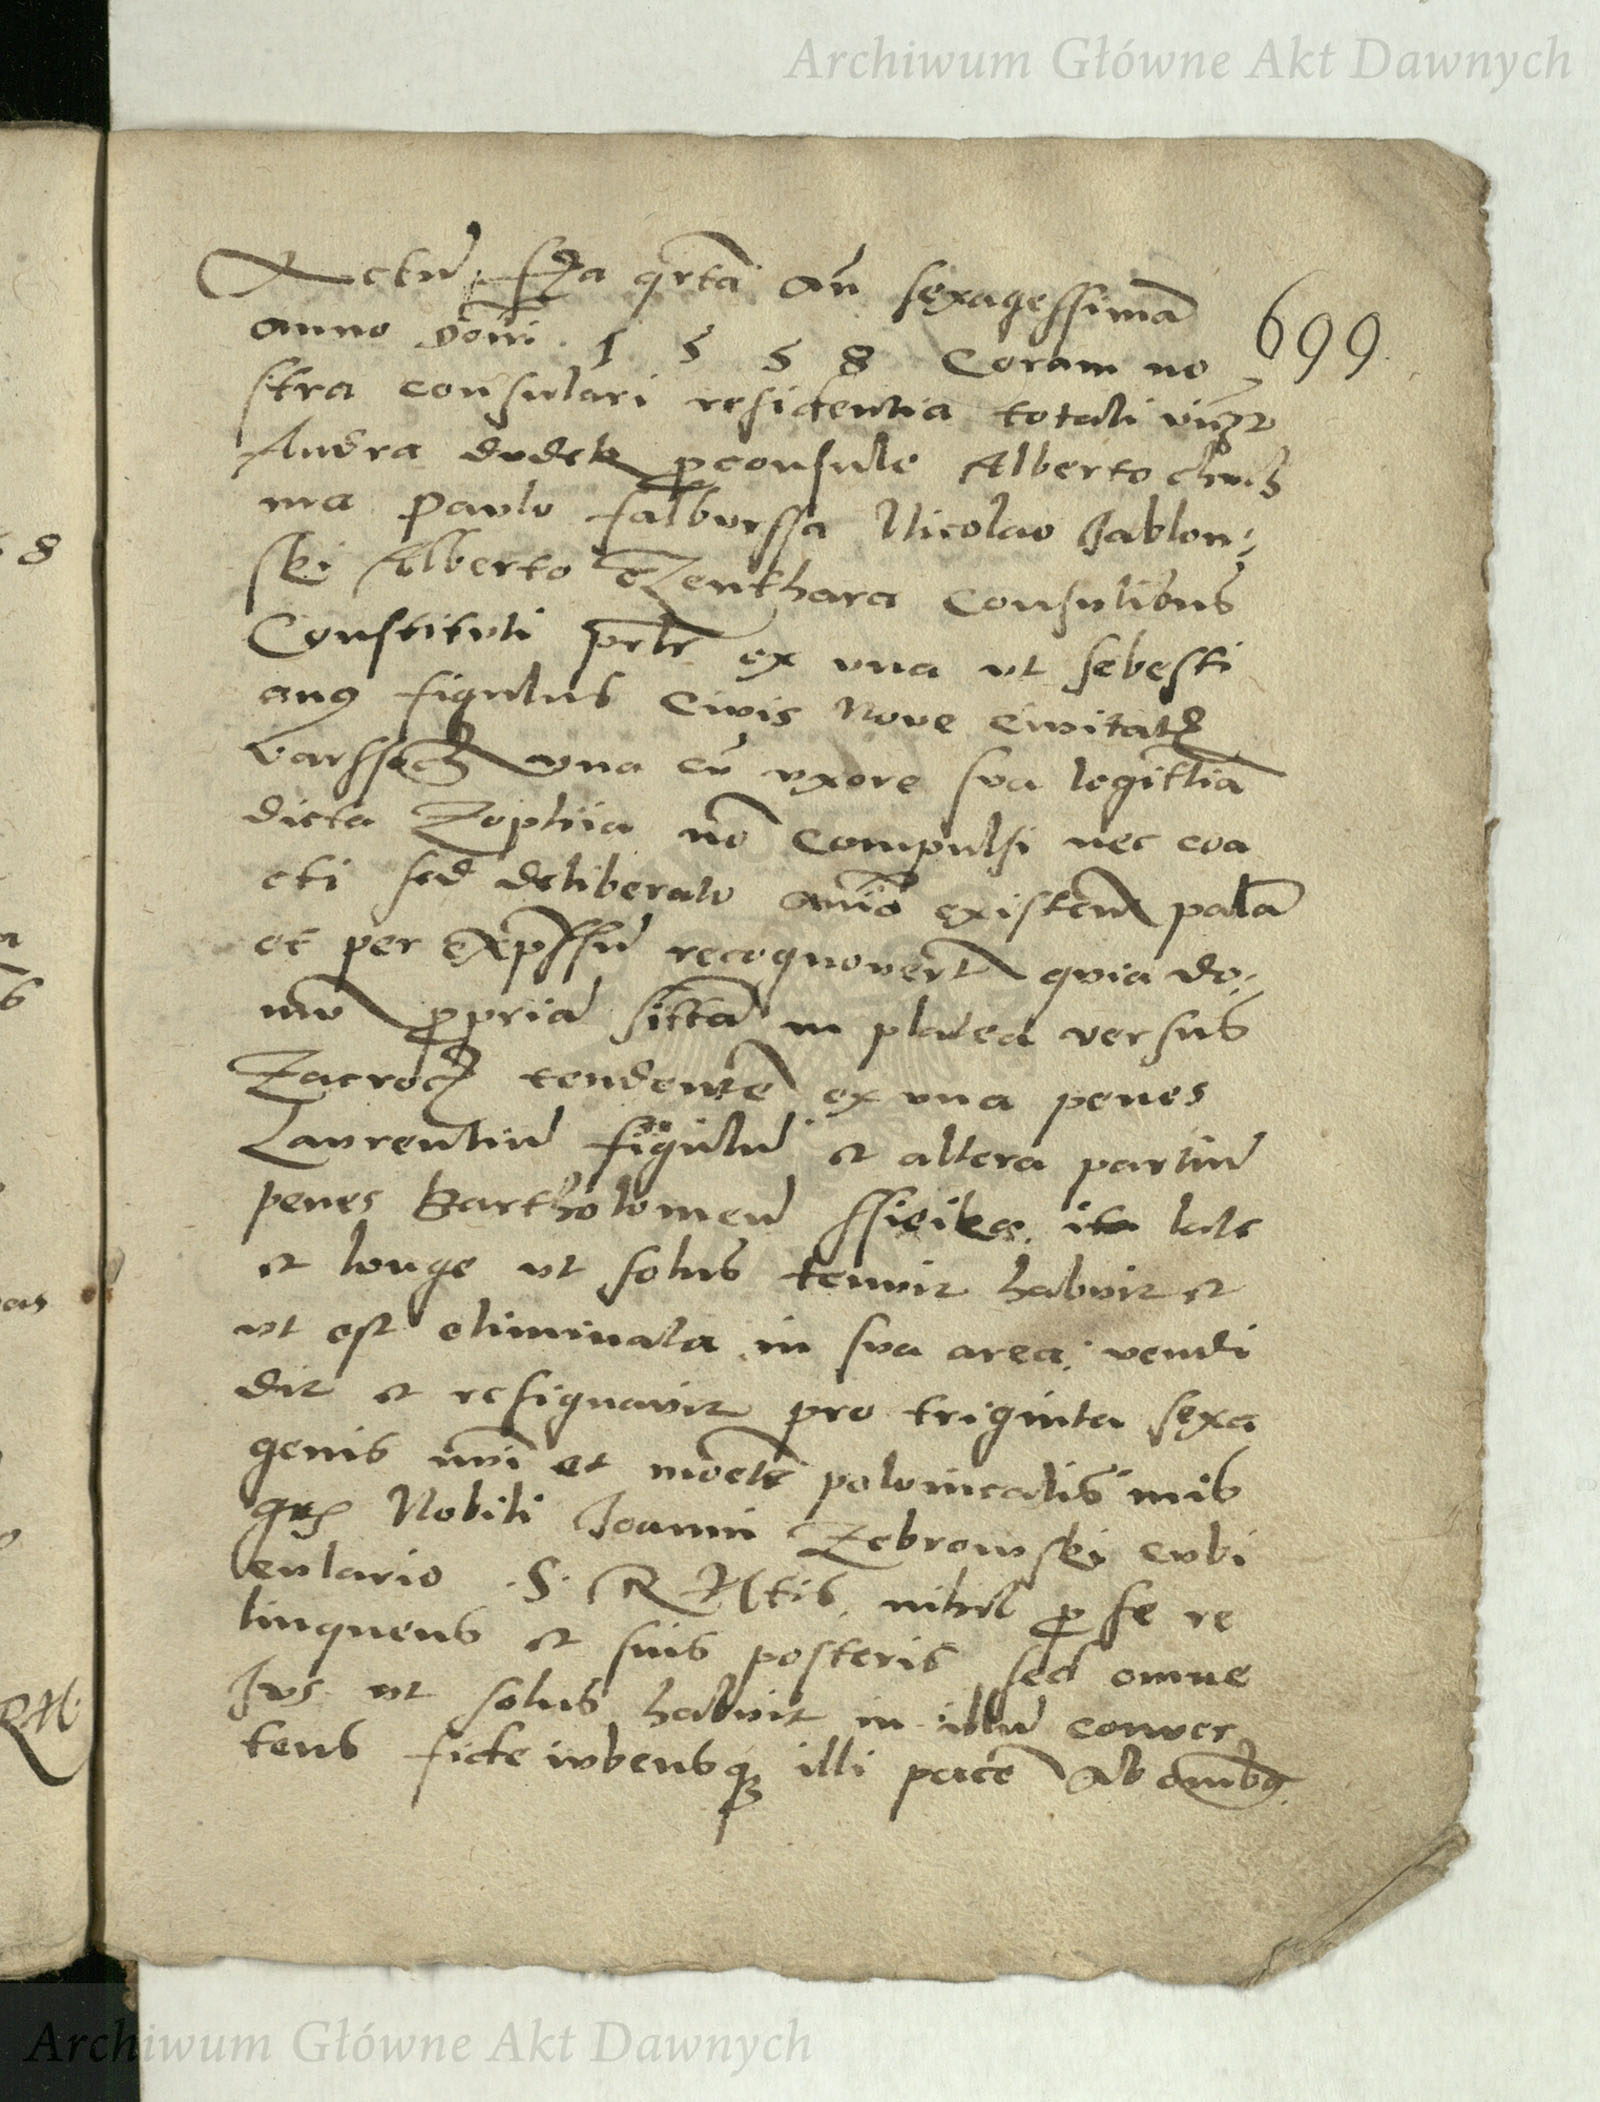 Archiwum Główne Akt Dawnych
Actū fĩa q̃rta añ sexagessimā
anno dom̄i 1558 Coram no
699
stra consulari residentia totali
Andra dudek ꝑconsule Alberto
ma Paulo falbierssa Nicolao Jablon:
ski Alberto Consulibus
Constituti ex una ut sebesti
anꝯ figulus Civis Nove Civitatꝭ
una cū uxore sua legittīa
dicta Zophia nō compulsi nec coa
cti sed deliberato anīo existentꝭ palā
et per expssū recognovert̄ quia do:
mū ꝓpriā sittā in platea versus
Zacrocꝭ tendentē ex una penes
Laurentiū figulū et altera partiū
penes Bartholomeū ita late
et longe ut solus tenuit habuit et
ut est eliminata in sua area: vendi
dit et resignavit pro triginta sexa
genis et monetē polonicalis
Nobili Joanni Zebrowski cubi
culario S. R. Mtis nihil ꝓ se re
linquens et suis posteris sed omne
Jus ut solus habuit in illū conver
tens iubensqꝫ illi pacē ab omībꝯ
8
RM
Archiwum Główne Akt Dawnych